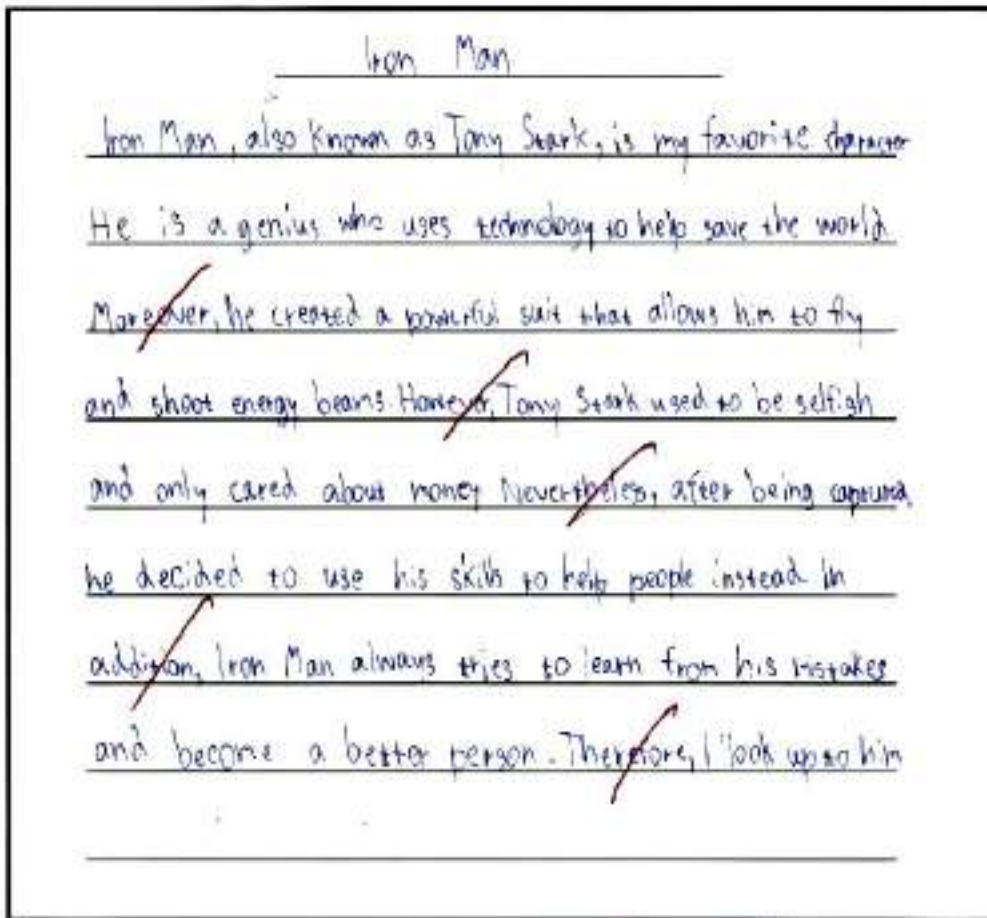 Iron Man
Iron Man, also known as Tony Stark, is my favorite character
He is a genius who uses technology to help save the world
Moreover, he created a powerful suit that allows him to fly
and shoot energy beams. However, Tony Stark used to be selfish
and only cared about money Nevertheless, after being captured,
he decided to use his skills to help people instead In
addition, Iron Man always tries to learn from his mistakes
and become a better person. Therefore, I look up to him